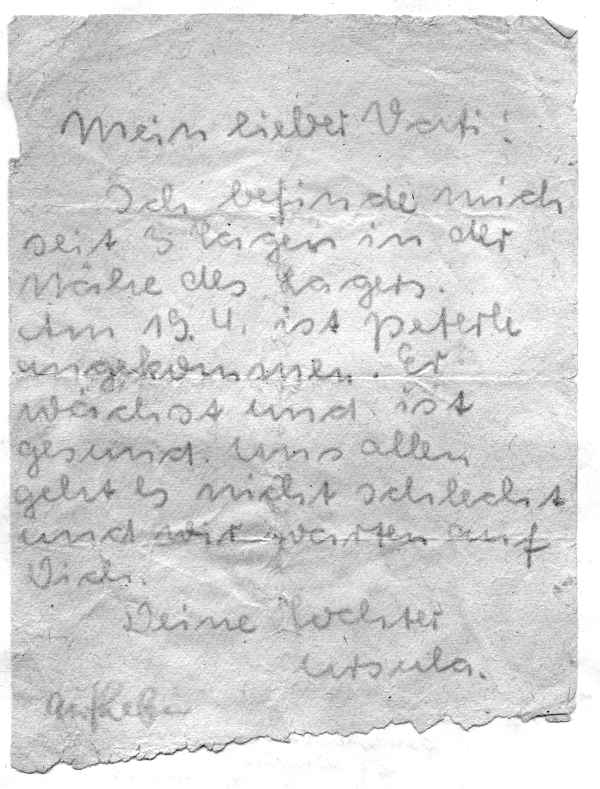 Mein lieber Vati!
Ich befinde mich
seit 3 Tagen in der
Nähe des Lagers.
Am 19. 4. ist Peterle
angekommen. Er
wächst und ist
gesund. Uns allen
geht es nicht schlecht
und wir warten auf
Dich.
Deine Tochter
Ursula.